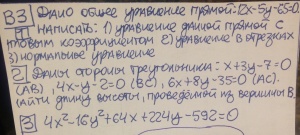 В3 Дано общее уравнение прямой: 2x-5y-65=0
1 Написать: 1) уравнение данной прямой с
угловым коэффициентом 2) уравнение в отрезках
3) нормальное уравнение
2 Даны стороны треугольника: x+3y-7=0
(AB), 4x-y-2=0 (BC), 6x+8y-35=0 (AC).
Найти длину высоты, проведённой из вершины В.
3 4x²-16y²+64x+224y-592=0